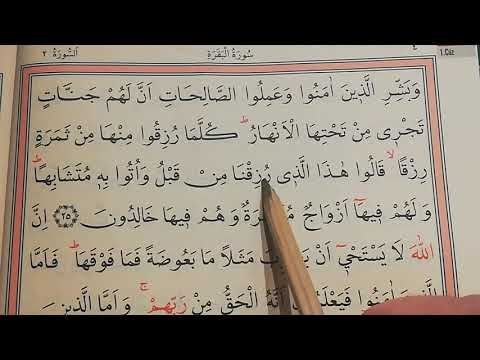 ٤ سُورَةُ الْبَقَرَةِ اَلسُّورَةُ ٢
1.Cüz
وَبَشِّرِ الَّذِينَ اٰمَنُوا وَعَمِلُوا الصَّالِحَاتِ اَنَّ لَهُمْ جَنَّاتٍ
تَجْرٖى مِنْ تَحْتِهَا الْاَنْهَارُ ۜ كُلَّمَا رُزِقُوا مِنْهَا مِنْ ثَمَرَةٍ
رِزْقًا ۙ قَالُوا هٰذَا الَّذٖى رُزِقْنَا مِنْ قَبْلُ وَاُتُوا بِهٖ مُتَشَابِهًا ۜ
وَلَهُمْ فٖيهَٓا اَزْوَاجٌ وَهُمْ فٖيهَا خَالِدُونَ ﴿٢٥﴾ اِنَّ
اللّٰهَ لَا يَسْتَحْيٖٓ اَنْ مَثَلًا مَا بَعُوضَةً فَمَا فَوْقَهَا ۜ فَاَمَّا
اٰمَنُوا اَنَّهُ الْحَقُّ مِنْ رَبِّهِمْ ۚ وَاَمَّا الَّذٖينَ